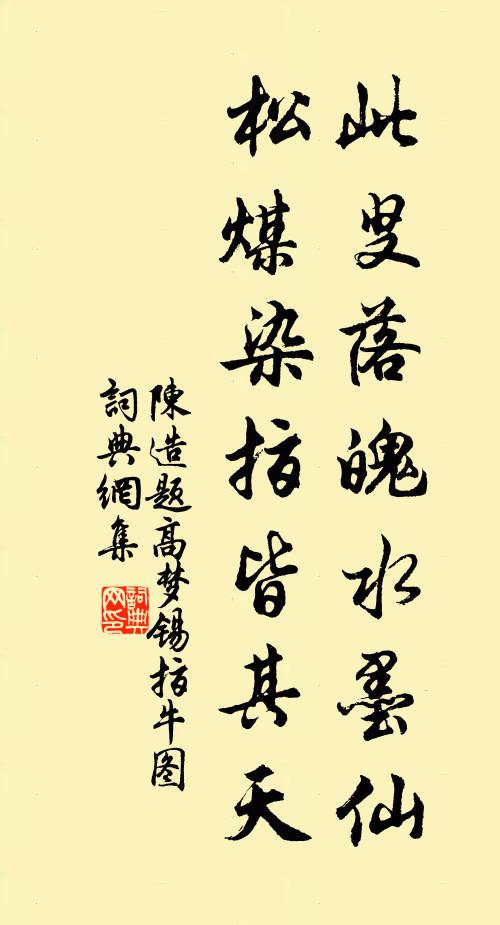 此叟落魄水墨仙
松煤染指皆其天
陳造題高梦锡指牛图
詞典網集
詞典
网印